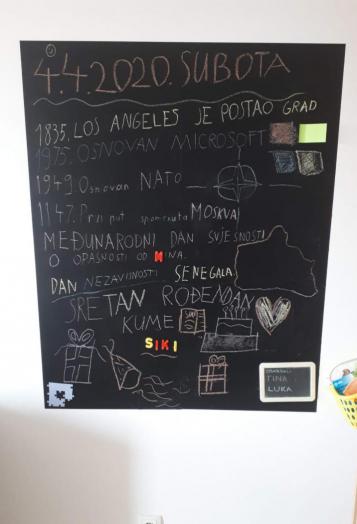 4.4.2020. SUBOTA
1835. LOS ANGELES JE POSTAO GRAD
1975. OSNOVAN MICROSOFT
1949. Osnovan NATO
1147. Prvi put spomenuta MOSKVA
MEĐUNARODNI DAN SVJESNOSTI
O OPASNOSTI OD MINA.
DAN NEZAVISNOSTI SENEGALA
SRETAN ROĐENDAN
KUME
SIKI
TINA
LUKA